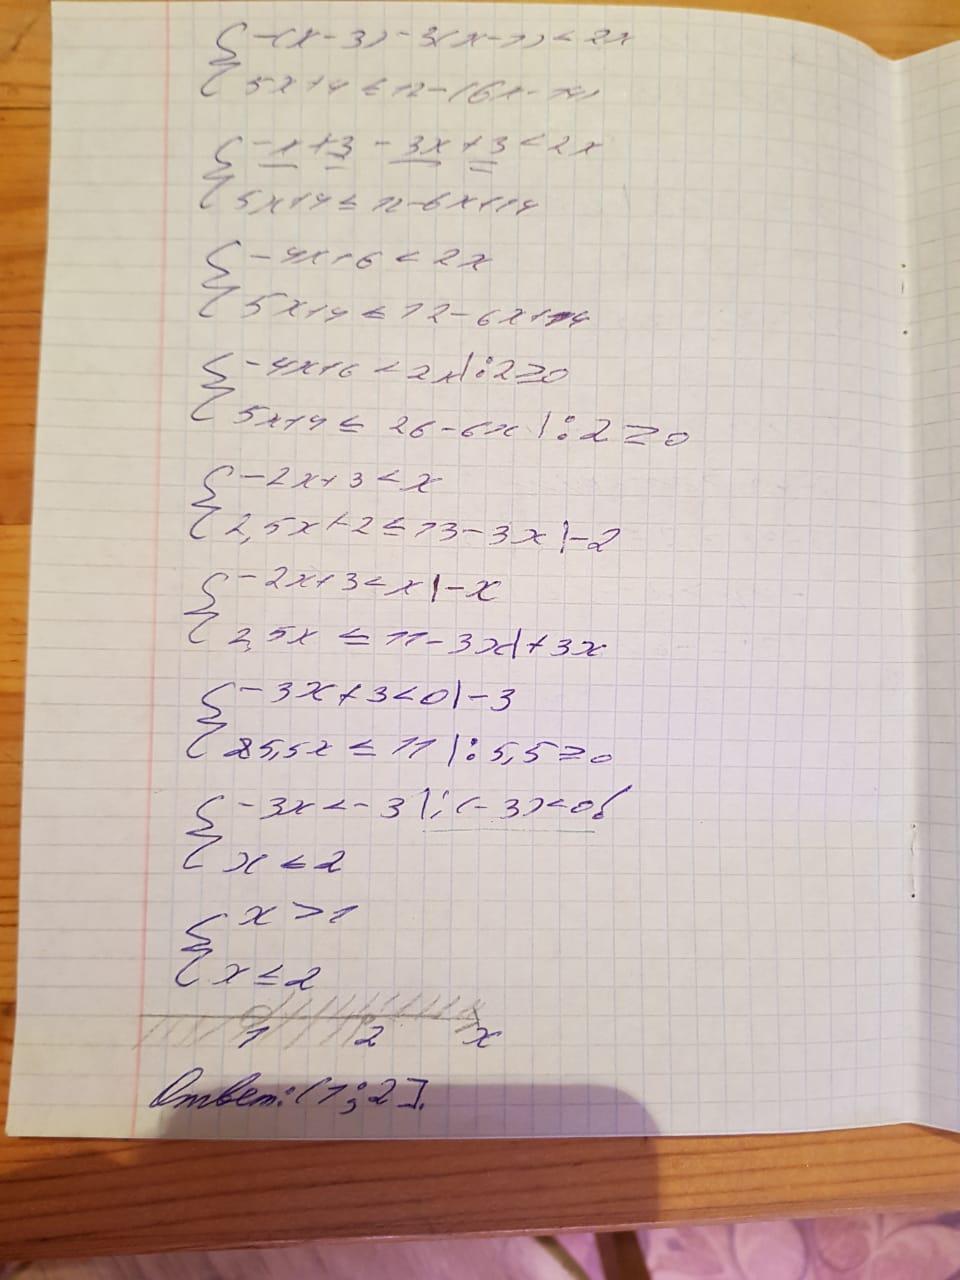 { -(x-3)-3(x-1)<2x
5x+4≤12-(6x-14)
{ -x+3-3x+3<2x
5x+4≤12-6x+14
{ -4x+6<2x
5x+4≤12-6x+14
{ -4x+6<2x|:2≥0
5x+4≤26-6x|:2≥0
{ -2x+3<x
2,5x+2≤13-3x|-2
{ -2x+3<x|-x
2,5x≤11-3x|+3x
{ -3x+3<0|-3
5,5x≤11|:5,5≥0
{ -3x<-3|:(-3)<0!
x≤2
{ x>1
x≤2
1 2 x
Ответ: (1;2].